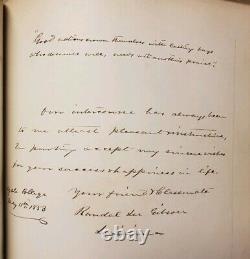 "Good actions crown themselves with lasting bays
Who deserves well, needs not another's praise".
Our intercourse has always been
to me almost pleasant instructive,
In parting accept my sincere wishes
for your success & happiness in life.
Yale College
May 11th 1853
Your friend & Classmate
Randal Lee Gibson
Louisiana